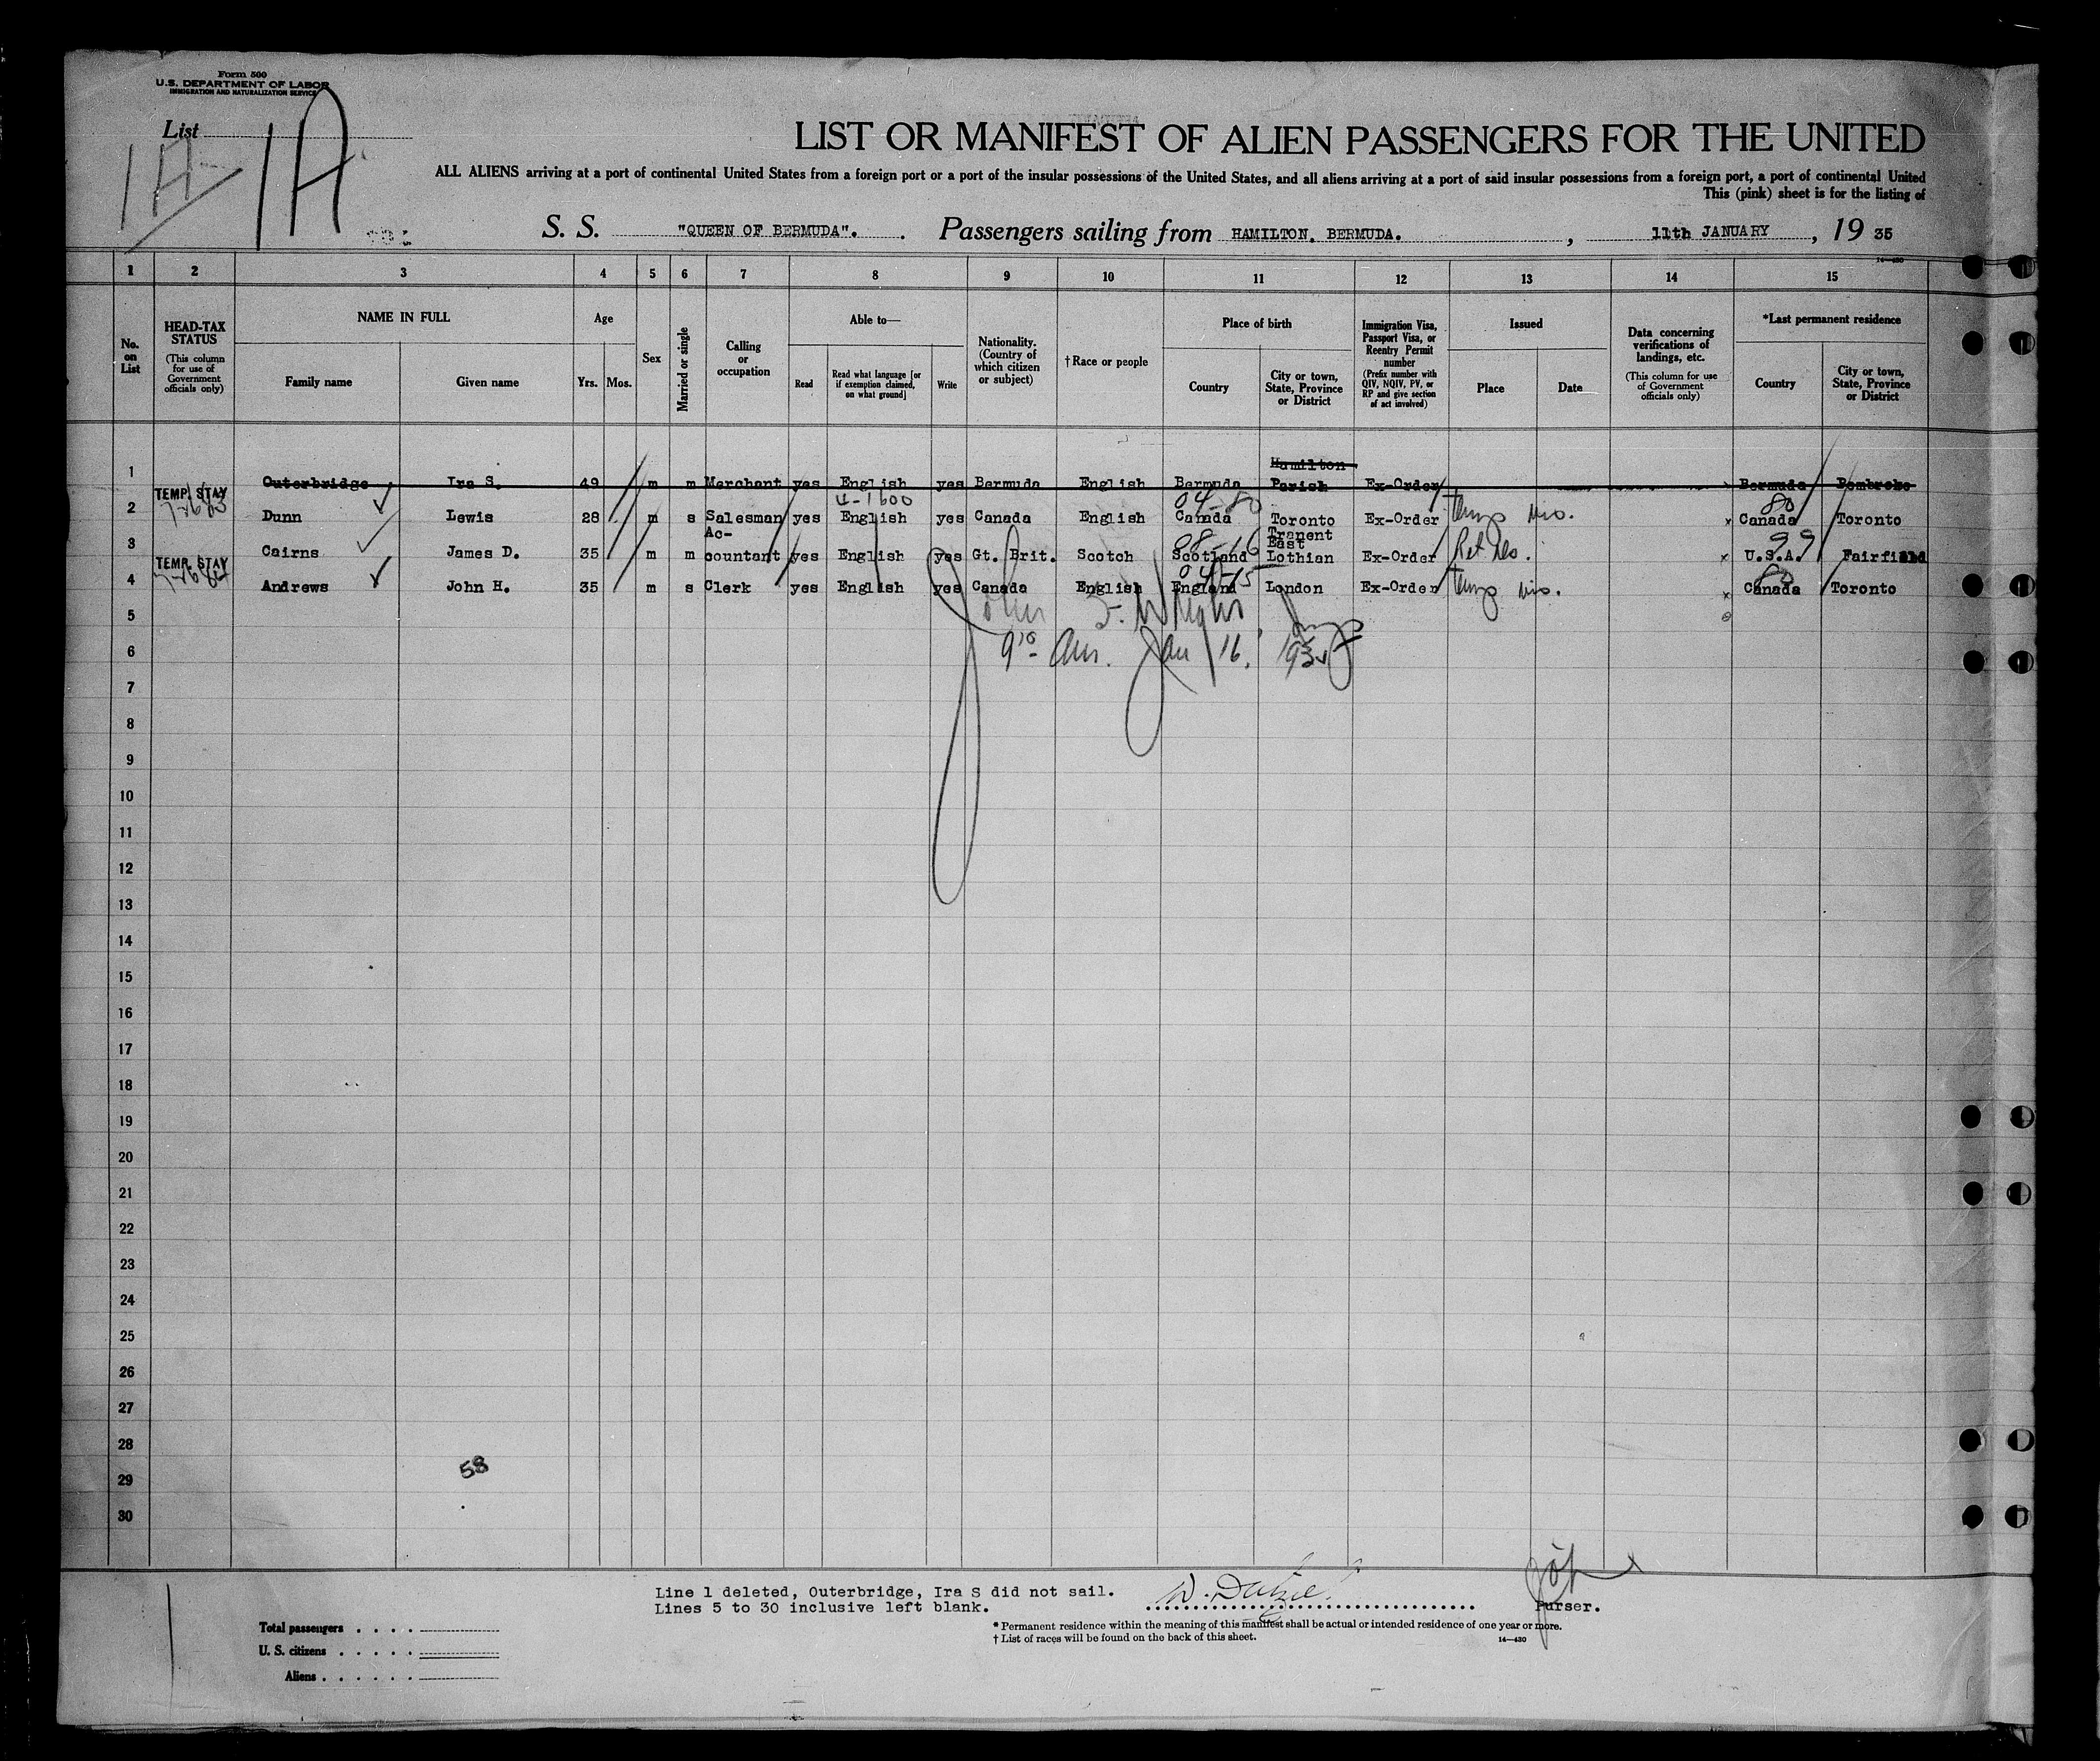 Form 500
U.S. DEPARTMENT OF LABOR
IMMIGRATION AND NATURALIZATION SERVICE
List
1A 1A
LIST OR MANIFEST OF ALIEN PASSENGERS FOR THE UNITED
ALL ALIENS arriving at a port of continental United States from a foreign port or a port of the insular possessions of the United States, and all aliens arriving at a port of said insular possessions from a foreign port, a port of continental United
This (pink) sheet is for the listing of
S. S. "QUEEN OF BERMUDA". Passengers sailing from HAMILTON, BERMUDA. , 11th JANUARY , 19 35
14-430
1 2 3 4 5 6 7 8 9 10 11 12 13 14 15
No. on List
HEAD-TAX STATUS (This column for use of Government officials only)
NAME IN FULL
Family name
Given name
Age
Yrs. Mos.
Sex
Married or single
Calling or occupation
Able to—
Read
Read what language [or if exemption claimed, on what ground]
Write
Nationality. (Country of which citizen or subject)
†Race or people
Place of birth
Country
City or town, State, Province or District
Immigration Visa, Passport Visa, or Reentry Permit number (Prefix number with QIV, NQIV, PV, or RP and give section of act involved)
Issued
Place
Date
Data concerning verifications of landings, etc. (This column for use of Government officials only)
*Last permanent residence
Country
City or town, State, Province or District
1 Outerbridge Ira S. 49 m m Merchant yes English yes Bermuda English Bermuda Hamilton Parish Ex-Order Bermuda Pembroke
TEMP. STAY 4-1600 04-80 80
2 Dunn Lewis 28 m s Salesman yes English yes Canada English Canada Toronto Ex-Order Temp vis. x Canada Toronto
08-16 99
3 Cairns James D. 35 m m Ac-countant yes English yes Gt. Brit. Scotch Scotland Tranent East Lothian Ex-Order Ret Res. x U.S.A. Fairfield
TEMP. STAY 04-15 80
4 Andrews John H. 35 m s Clerk yes English yes Canada English England London Ex-Order Temp vis. x Canada Toronto
5
John
6
9 10 Am. Jan 16, 1935
7
8
9
10
11
12
13
14
15
16
17
18
19
20
21
22
23
24
25
26
27
28
58
29
30
Line 1 deleted, Outerbridge, Ira S did not sail.
Lines 5 to 30 inclusive left blank.
Purser.
Total passengers . . . .
U. S. citizens . . . . .
Aliens . . . . . .
* Permanent residence within the meaning of this manifest shall be actual or intended residence of one year or more.
† List of races will be found on the back of this sheet.
14-430